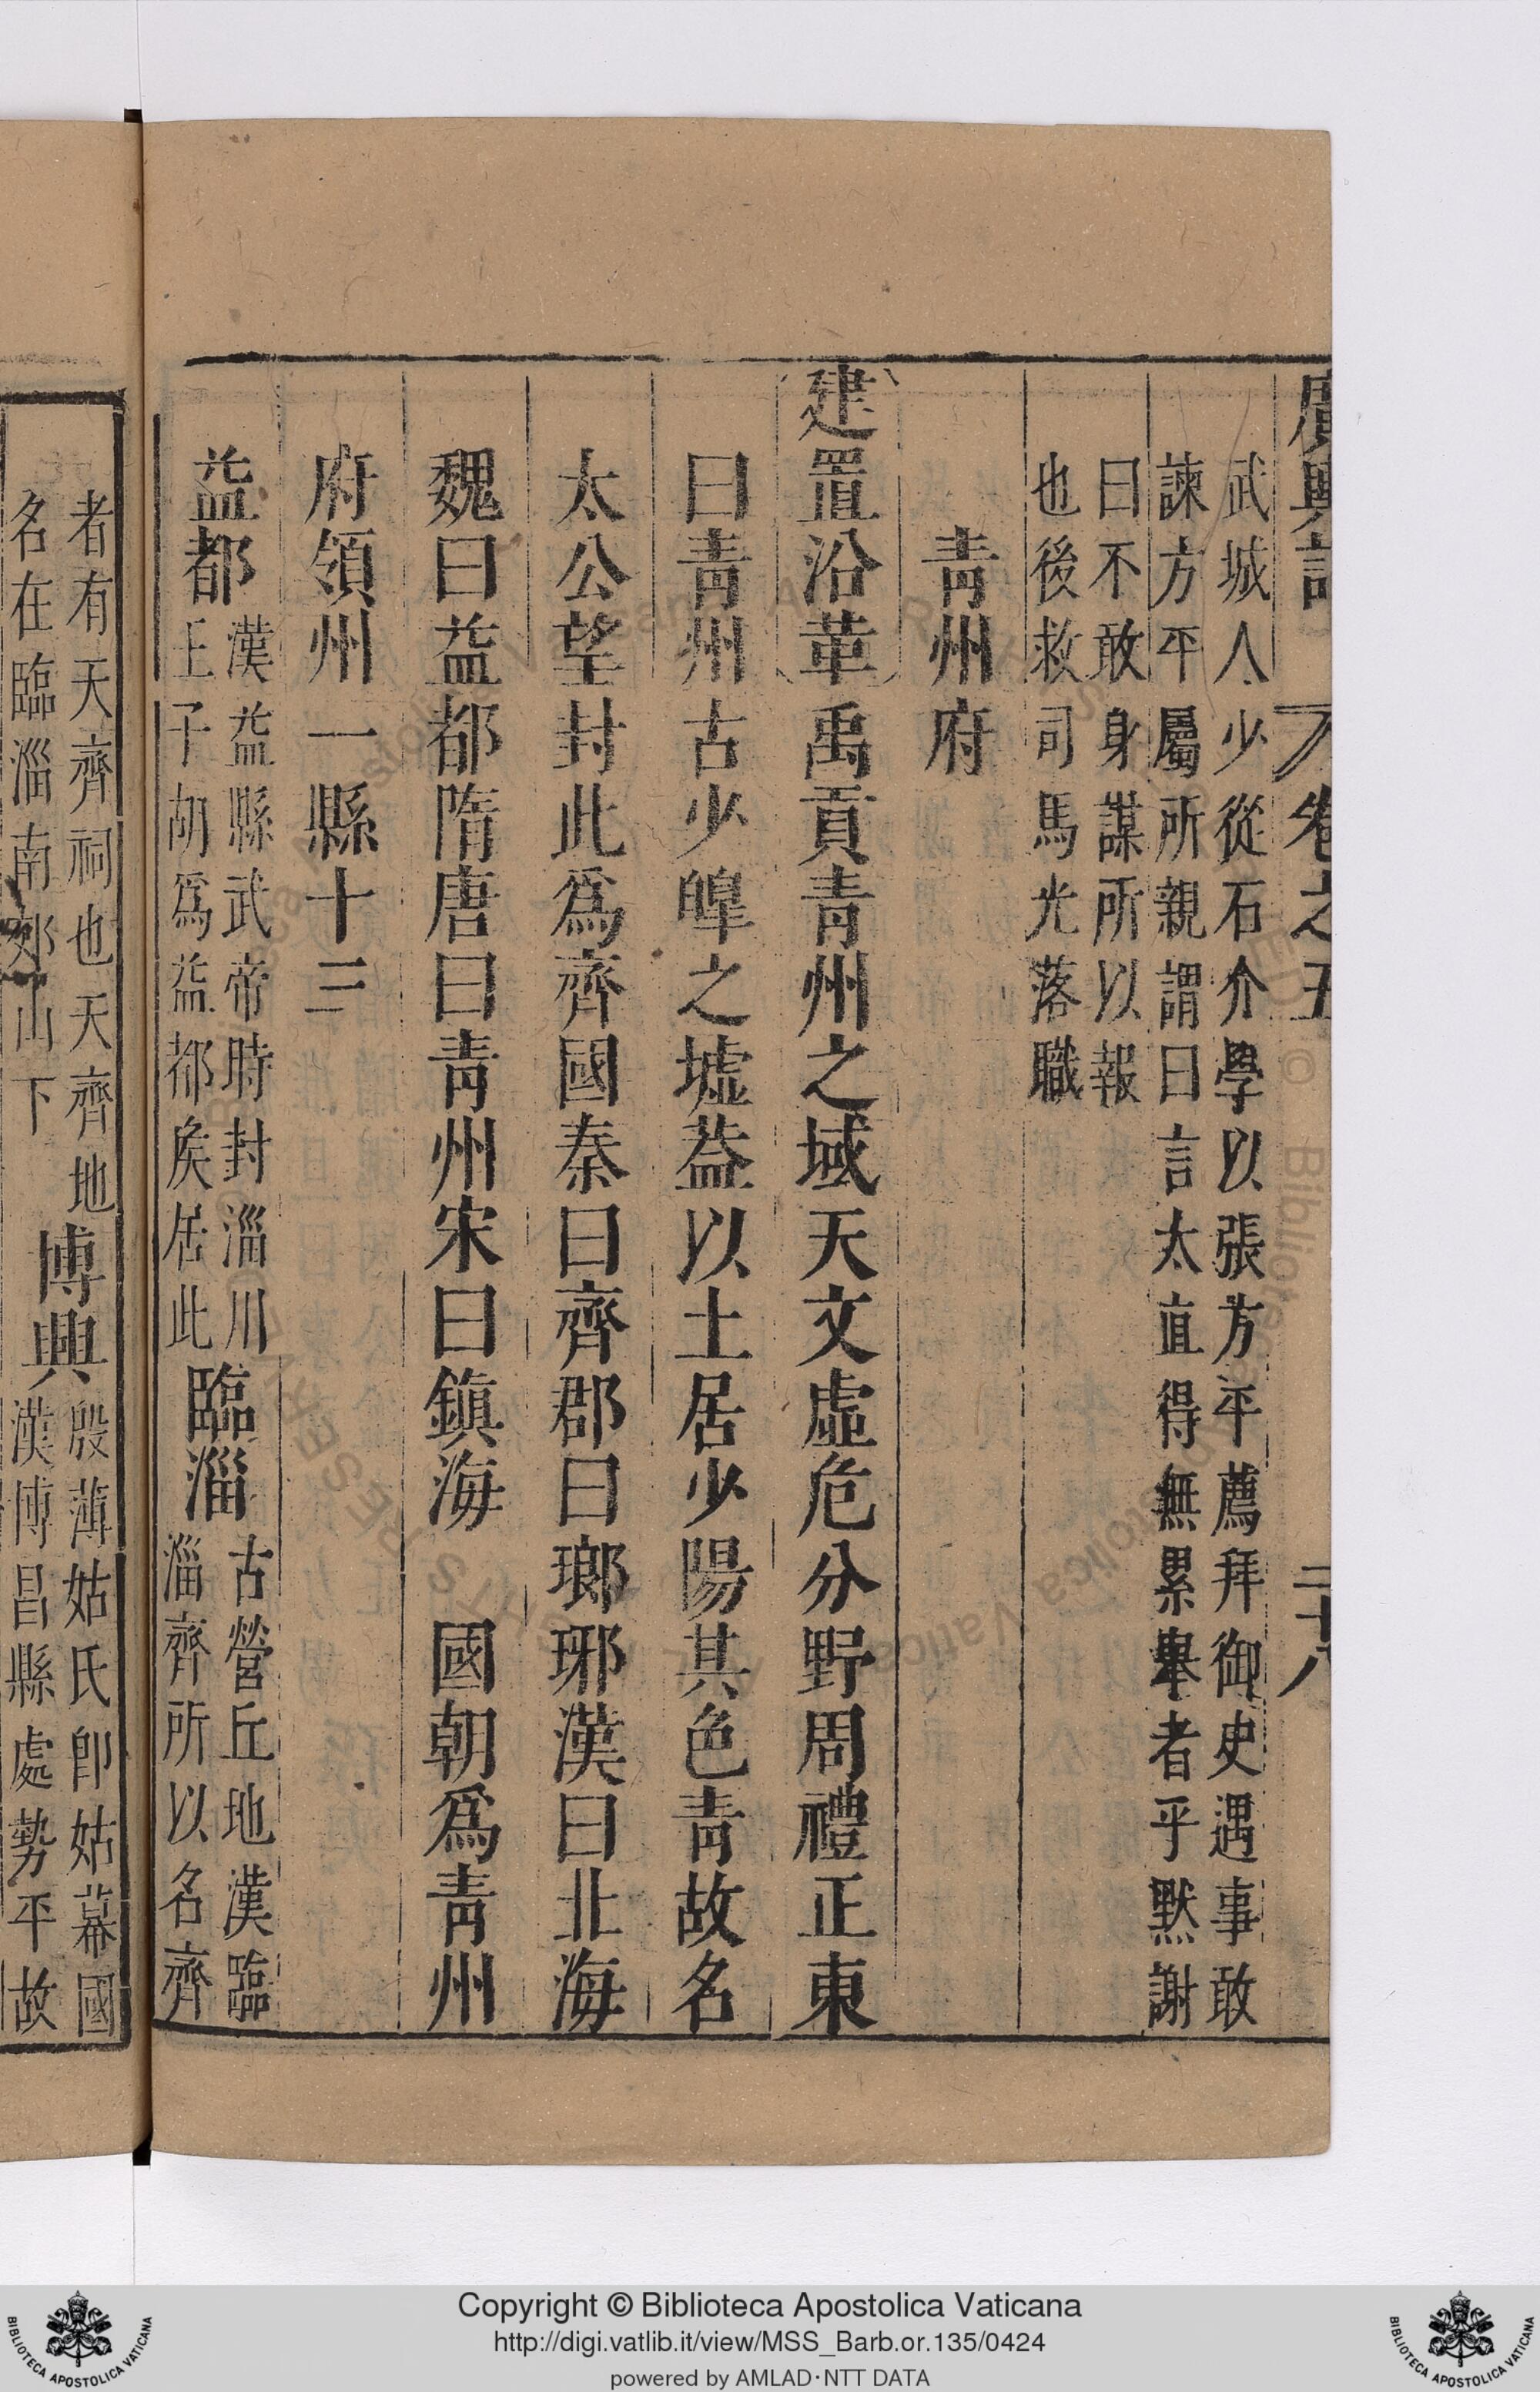 廣輿記 卷之五 二十八
武城人少從石介學以張方平薦拜御史遇事敢
諫方平屬所親謂曰言太直得無累舉者乎默謝
曰不敢身謀所以報
也後救司馬光落職
青州府
建置沿革禹貢青州之域天文虛危分野周禮正東
曰青州古少皞之墟葢以土居少陽其色青故名
太公望封此爲齊國秦曰齊郡曰瑯琊漢曰北海
魏曰益都隋唐曰青州宋曰鎮海 國朝爲青州
府領州一縣十三
益都
漢益縣武帝時封淄川
王子胡爲益都侯居此
臨淄
古營丘地漢臨
淄齊所以名齊
者有天齊祠也天齊地
名在臨淄南郊山下
博興
殷薄姑氏卽姑幕國
漢博昌縣處勢平故
Copyright © Biblioteca Apostolica Vaticana
http://digi.vatlib.it/view/MSS_Barb.or.135/0424
powered by AMLAD·NTT DATA
BIBLIOTECA APOSTOLICA VATICANA
BIBLIOTECA APOSTOLICA VATICANA